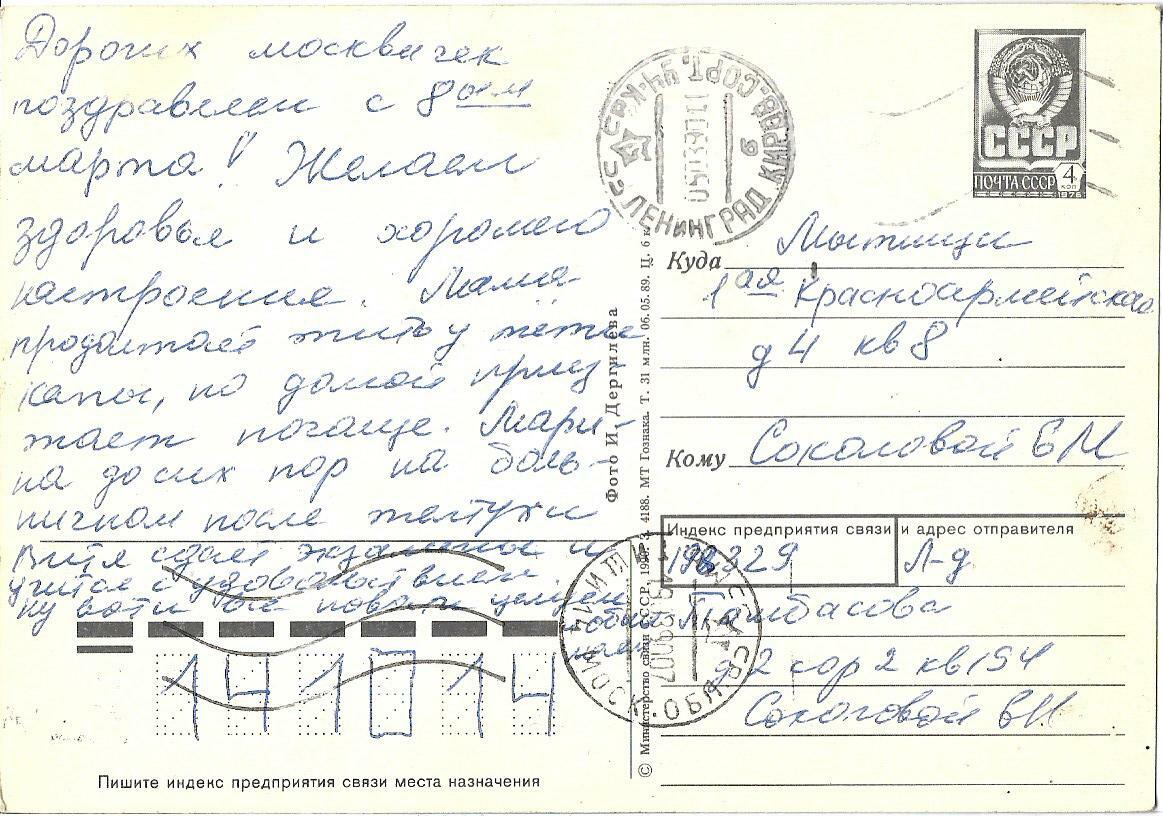 Дорогих москвичек
поздравляем с 8ым
марта! Желаем
здоровья и хорошего
настроения. Мама
продолжает жить у тети
Кати, но домой приез
жает почаще. Мари-
на до сих пор на боль-
ничном после желтухи
Витя сдает экзамены и
учится с удовольствием.
Ну вот и все новости целуем
обнимаем
СССР
ПОЧТА СССР 4 КОП
1976
ЛЕНИНГРАД
050390
Куда Мытищи
1ая Красноармейская
д 4 кв 8
Кому Соколовой ЕМ
Индекс предприятия связи и адрес отправителя
198329 Л-д
Тамбасова
д 2 кор 2 кв 154
Соколовой ВН
Фото И. Дергилева
© Министерство связи СССР. 1990. З. 4188. МТ Гознака. Т. 31 млн. 06.05.89. Ц. 6 к.
141014
Пишите индекс предприятия связи места назначения